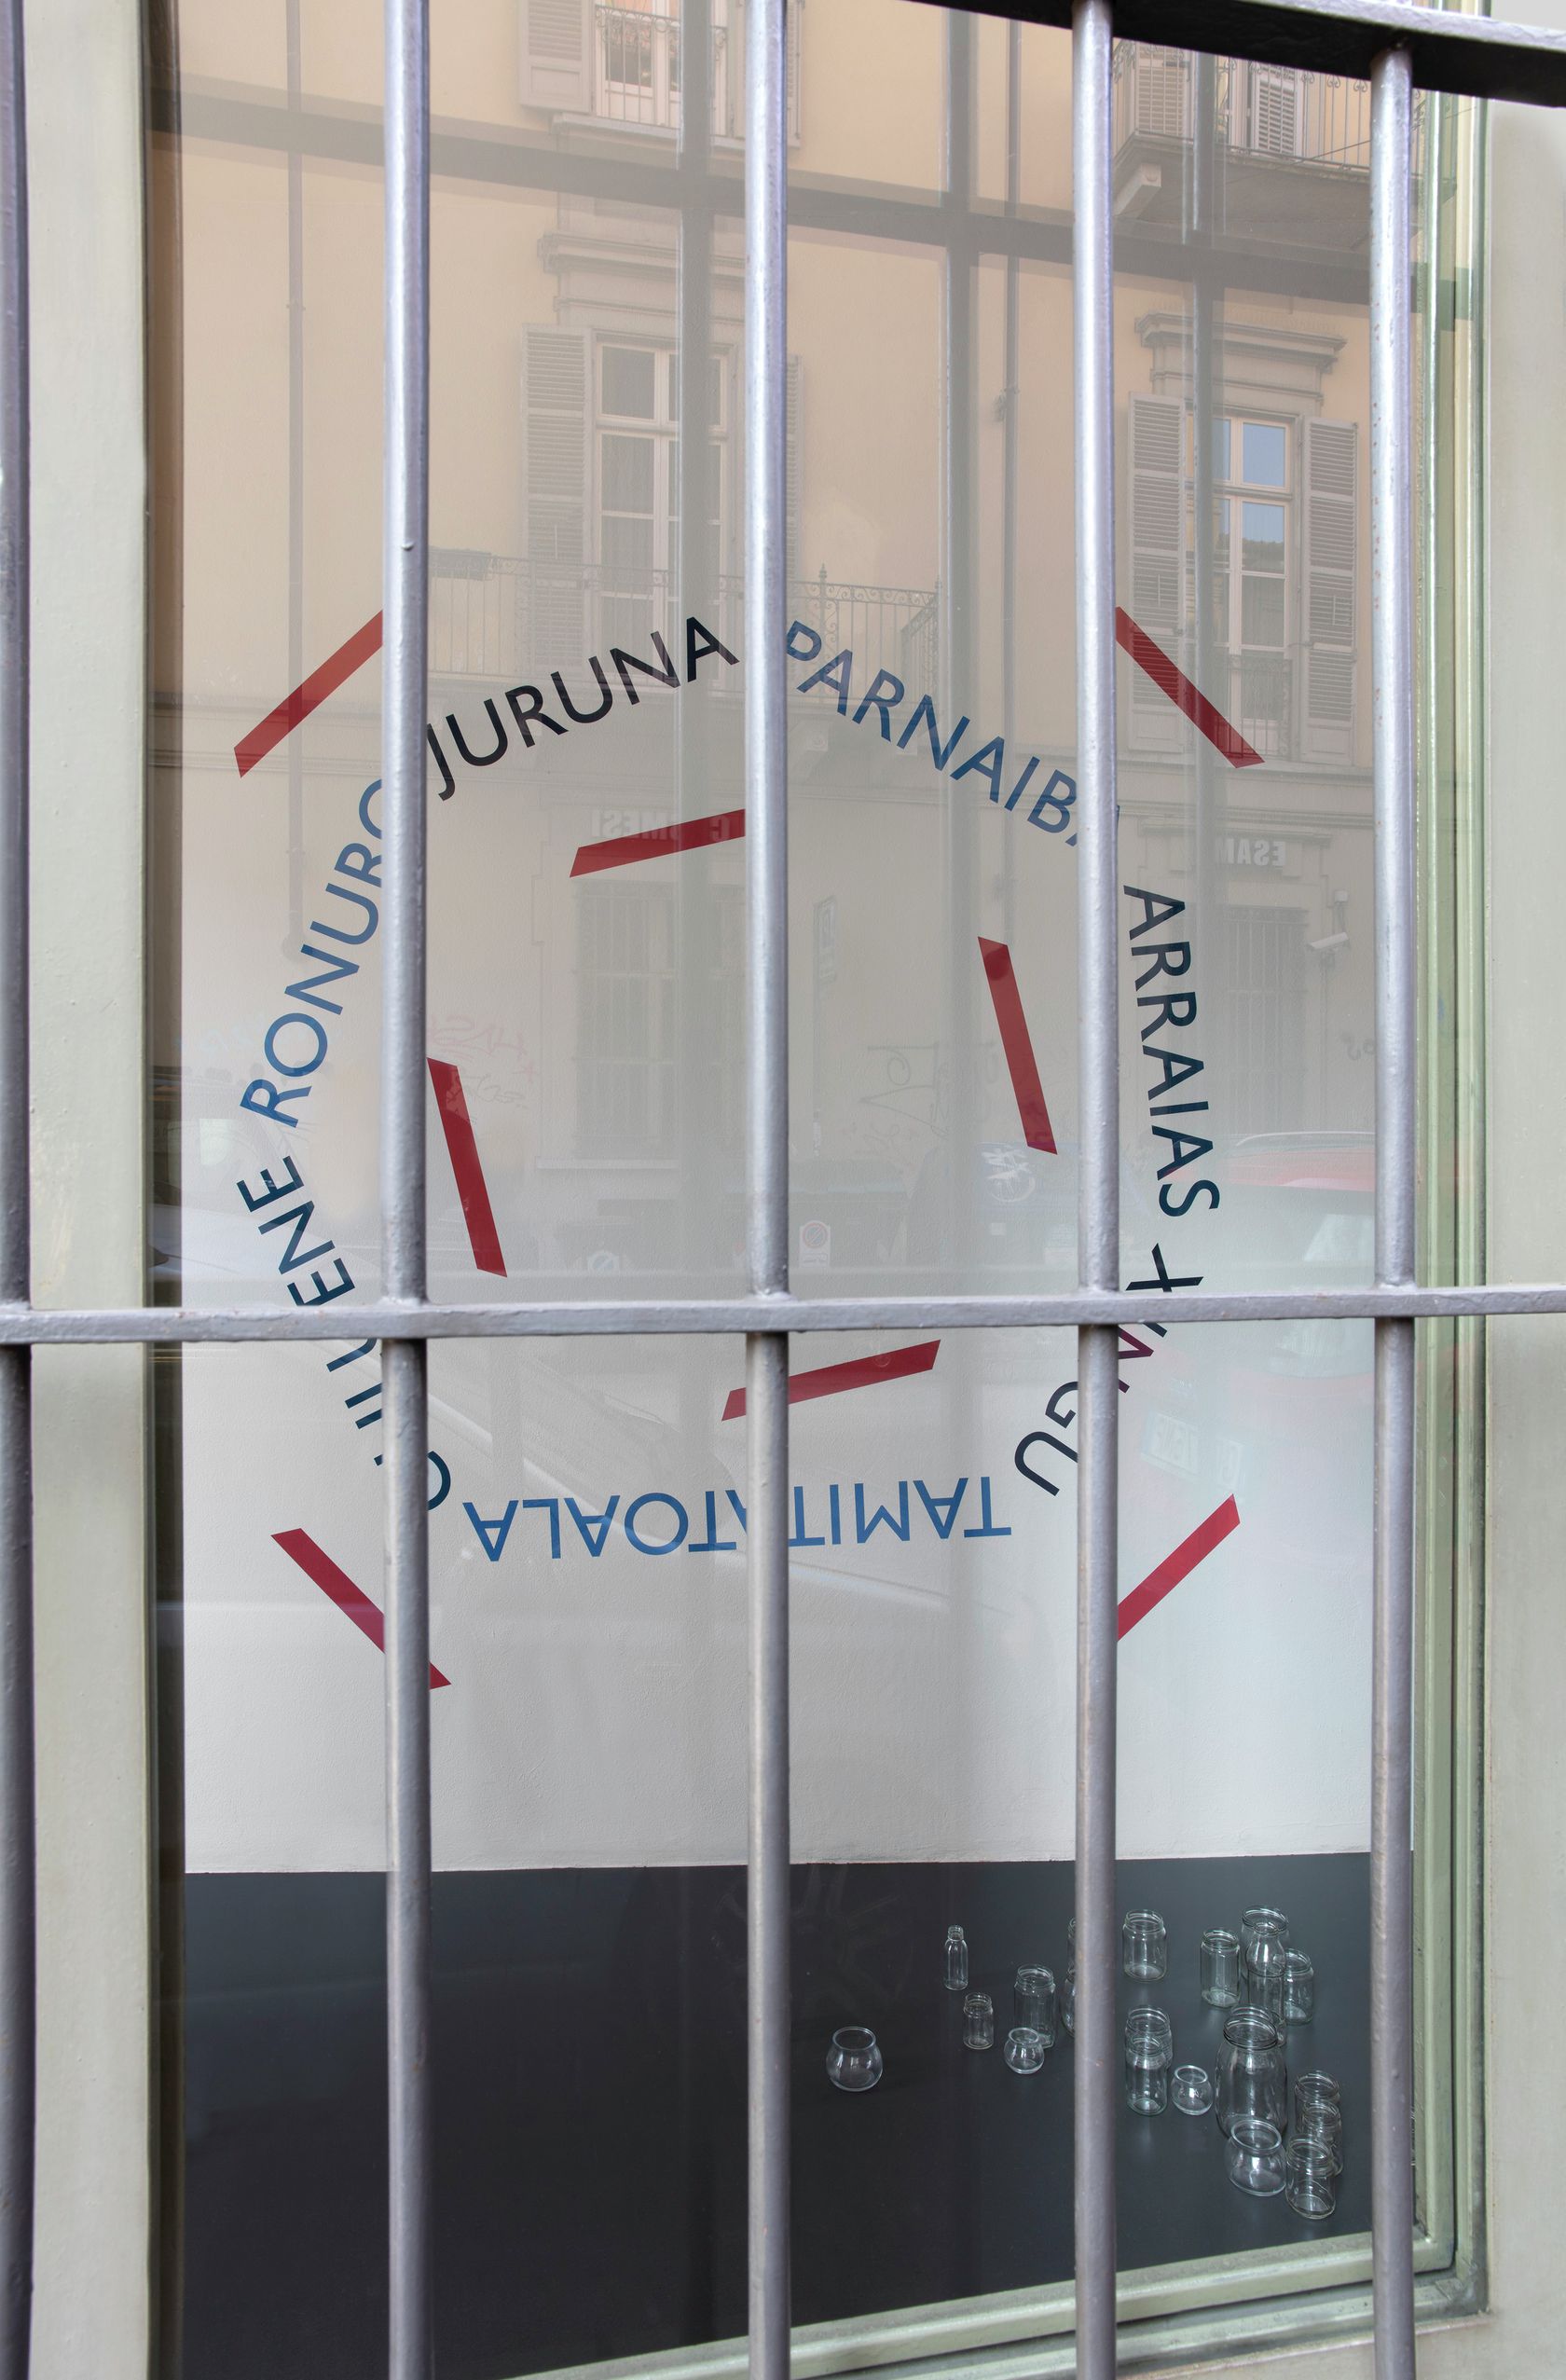 JURUNA
PARNAIBA
ARRAIAS
XINGU
TAMITATOALA
CULUENE
RONURO